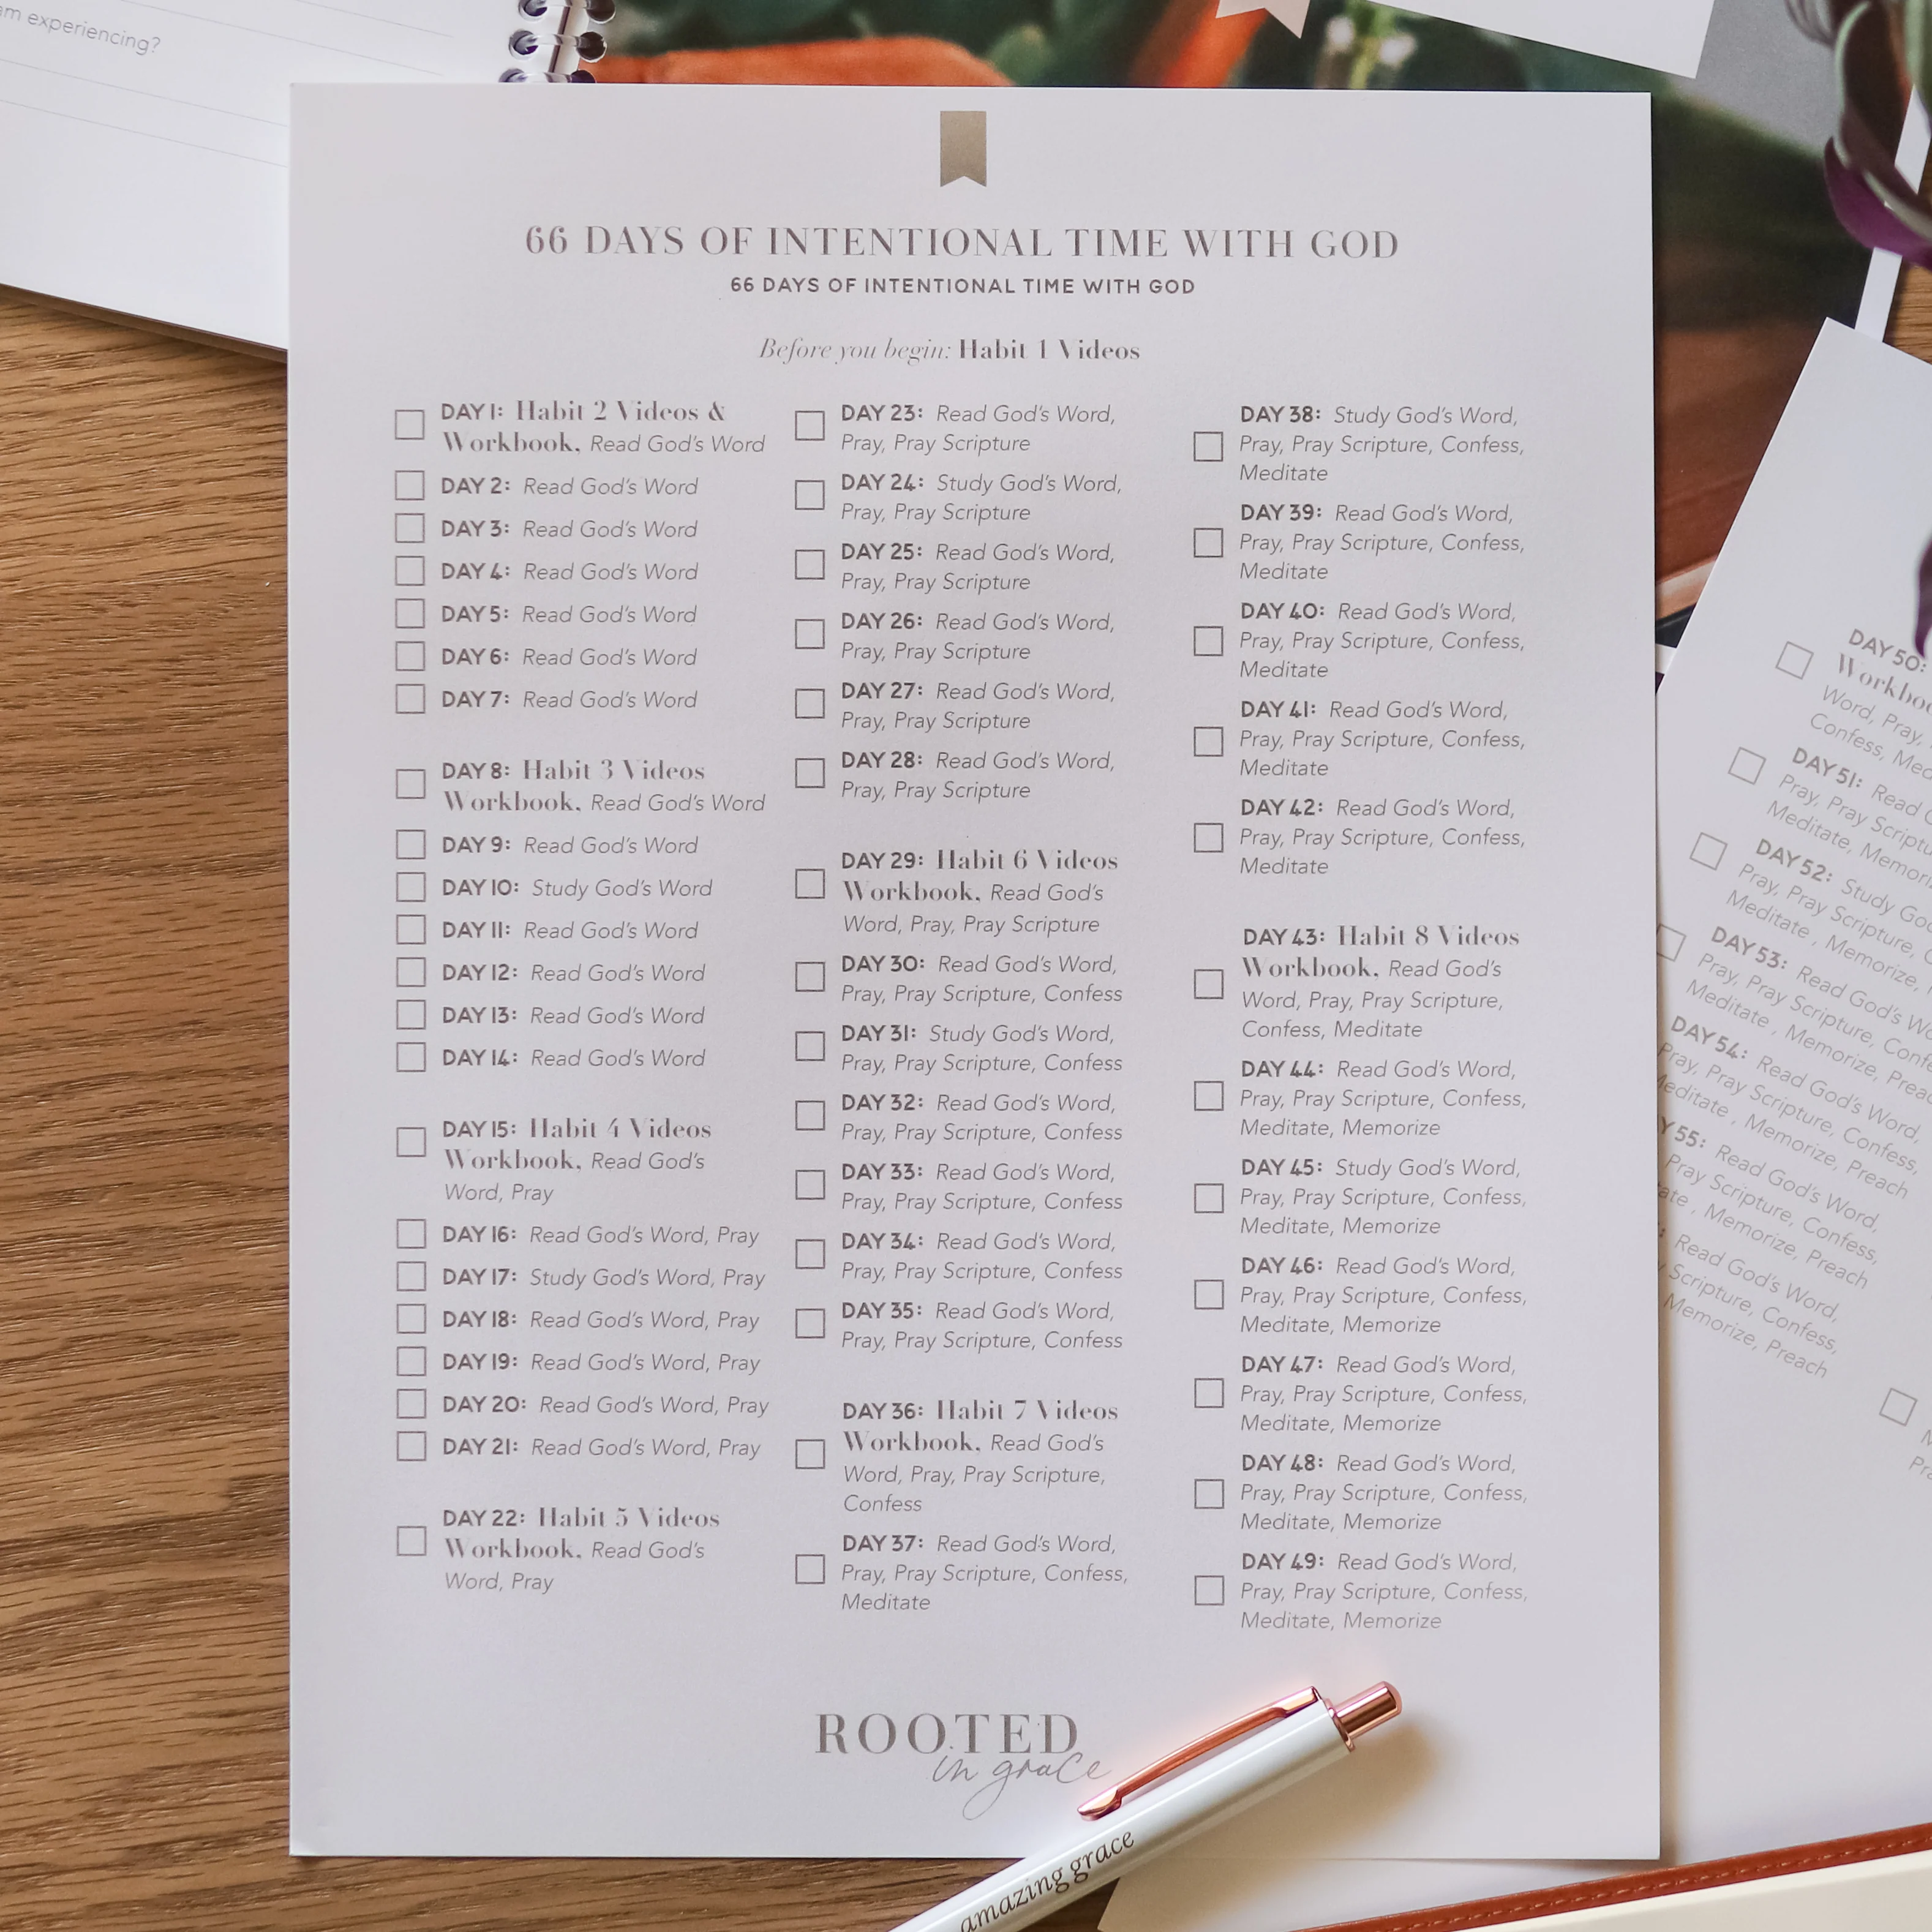 am experiencing?
66 DAYS OF INTENTIONAL TIME WITH GOD
66 DAYS OF INTENTIONAL TIME WITH GOD
Before you begin: Habit 1 Videos
DAY 1: Habit 2 Videos &
Workbook, Read God's Word
DAY 2: Read God's Word
DAY 3: Read God's Word
DAY 4: Read God's Word
DAY 5: Read God's Word
DAY 6: Read God's Word
DAY 7: Read God's Word
DAY 8: Habit 3 Videos
Workbook, Read God's Word
DAY 9: Read God's Word
DAY 10: Study God's Word
DAY 11: Read God's Word
DAY 12: Read God's Word
DAY 13: Read God's Word
DAY 14: Read God's Word
DAY 15: Habit 4 Videos
Workbook, Read God's
Word, Pray
DAY 16: Read God's Word, Pray
DAY 17: Study God's Word, Pray
DAY 18: Read God's Word, Pray
DAY 19: Read God's Word, Pray
DAY 20: Read God's Word, Pray
DAY 21: Read God's Word, Pray
DAY 22: Habit 5 Videos
Workbook, Read God's
Word, Pray
DAY 23: Read God's Word,
Pray, Pray Scripture
DAY 24: Study God's Word,
Pray, Pray Scripture
DAY 25: Read God's Word,
Pray, Pray Scripture
DAY 26: Read God's Word,
Pray, Pray Scripture
DAY 27: Read God's Word,
Pray, Pray Scripture
DAY 28: Read God's Word,
Pray, Pray Scripture
DAY 29: Habit 6 Videos
Workbook, Read God's
Word, Pray, Pray Scripture
DAY 30: Read God's Word,
Pray, Pray Scripture, Confess
DAY 31: Study God's Word,
Pray, Pray Scripture, Confess
DAY 32: Read God's Word,
Pray, Pray Scripture, Confess
DAY 33: Read God's Word,
Pray, Pray Scripture, Confess
DAY 34: Read God's Word,
Pray, Pray Scripture, Confess
DAY 35: Read God's Word,
Pray, Pray Scripture, Confess
DAY 36: Habit 7 Videos
Workbook, Read God's
Word, Pray, Pray Scripture,
Confess
DAY 37: Read God's Word,
Pray, Pray Scripture, Confess,
Meditate
DAY 38: Study God's Word,
Pray, Pray Scripture, Confess,
Meditate
DAY 39: Read God's Word,
Pray, Pray Scripture, Confess,
Meditate
DAY 40: Read God's Word,
Pray, Pray Scripture, Confess,
Meditate
DAY 41: Read God's Word,
Pray, Pray Scripture, Confess,
Meditate
DAY 42: Read God's Word,
Pray, Pray Scripture, Confess,
Meditate
DAY 43: Habit 8 Videos
Workbook, Read God's
Word, Pray, Pray Scripture,
Confess, Meditate
DAY 44: Read God's Word,
Pray, Pray Scripture, Confess,
Meditate, Memorize
DAY 45: Study God's Word,
Pray, Pray Scripture, Confess,
Meditate, Memorize
DAY 46: Read God's Word,
Pray, Pray Scripture, Confess,
Meditate, Memorize
DAY 47: Read God's Word,
Pray, Pray Scripture, Confess,
Meditate, Memorize
DAY 48: Read God's Word,
Pray, Pray Scripture, Confess,
Meditate, Memorize
DAY 49: Read God's Word,
Pray, Pray Scripture, Confess,
Meditate, Memorize
ROOTED
in grace
amazing grace
DAY 50:
Word, Pray,
Confess,
DAY 51: Read
Pray, Pray
Meditate,
DAY 52: Study
Pray, Pray Scripture,
Meditate , Memorize,
DAY 53: Read God's
Pray, Pray Scripture,
Meditate , Memorize, Preach
DAY 54: Read God's Word,
Pray, Pray Scripture, Confess,
Meditate , Memorize, Preach
55: Read God's Word,
Pray Scripture, Confess,
, Memorize, Preach
Read God's Word,
Scripture, Confess,
Memorize, Preach